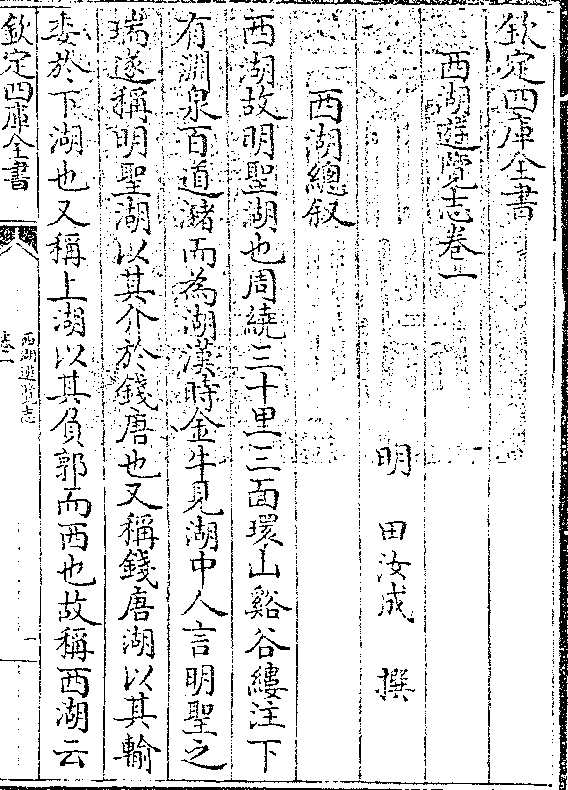 欽定四庫全書
西湖遊覽志卷一
明 田汝成 撰
西湖總叙
西湖故明聖湖也周繞三十里三面環山谿谷縷注下
有淵泉百道瀦而為湖漢時金牛見湖中人言明聖之
瑞遂稱明聖湖以其介於錢唐也又稱錢唐湖以其輸
委於下湖也又稱上湖以其負郭而西也故稱西湖云
欽定四庫全書
西湖遊覽志
卷一
一